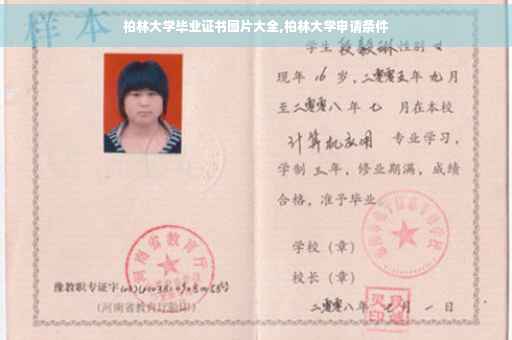 柏林大学毕业证书图片大全,柏林大学申请条件
样本
学生段毅琳性别女
现年16岁,二零零五年九月
至二零零八年七月在本校
计算机应用专业学习,
学制三年,修业期满,成绩
合格,准予毕业
学校(章)
校长(章)
二零零八年七月一日
河南省教育厅
豫教职专证字
(河南省教育厅验印)